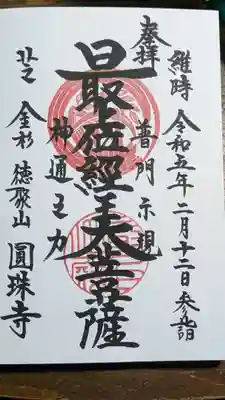 奉拝
維時 令和五年二月十二日参詣
普門示現
最正位經王大菩薩
神通之力
金杉 徳聚山 圓珠寺